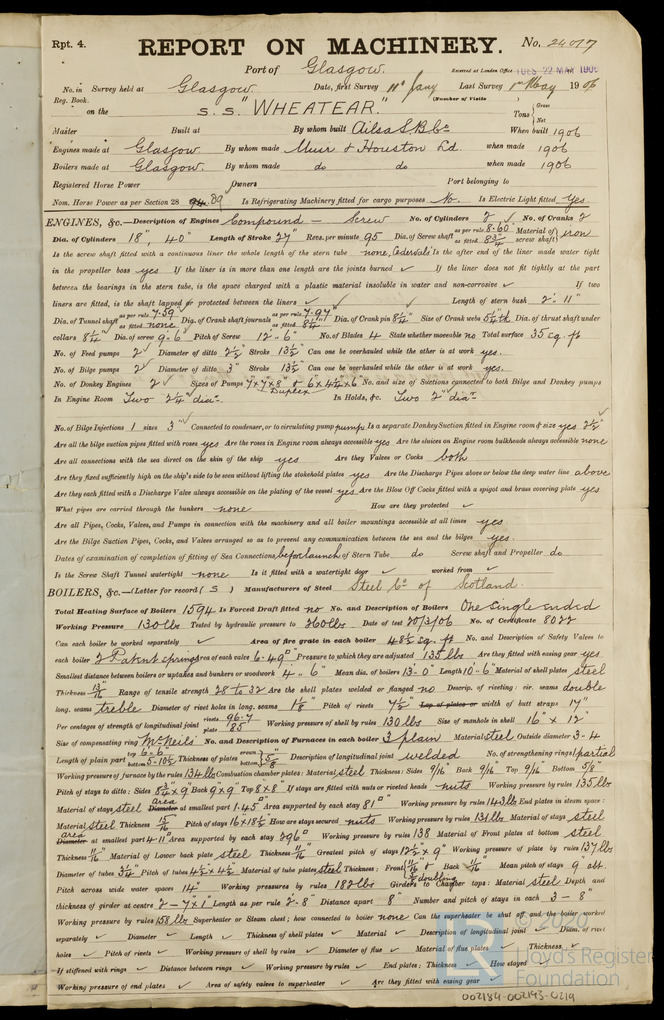 Rpt. 4.
REPORT ON MACHINERY.
No. 24017
Port of Glasgow.
Received at London Office TUES. 22 MAY 1906
No. in Survey held at Glasgow. Date, first Survey 11th Jany Last Survey 1st May 1906
Reg. Book. (Number of Visits
on the S.S. "WHEATEAR." Tons Gross Net
Master Built at By whom built Ailsa S B Co When built 1906
Engines made at Glasgow. By whom made Muir & Houston Ld. when made 1906
Boilers made at Glasgow. By whom made do do when made 1906
Registered Horse Power Owners Port belonging to
Nom. Horse Power as per Section 28 94 89 Is Refrigerating Machinery fitted for cargo purposes No. Is Electric Light fitted Yes.
ENGINES, &c.—Description of Engines Compound – Screw No. of Cylinders 2 No. of Cranks 2
Dia. of Cylinders 18", 40" Length of Stroke 27" Revs. per minute 95 Dia. of Screw shaft as per rule 8.60 as fitted 8 3/4" Material of screw shaft iron
Is the screw shaft fitted with a continuous liner the whole length of the stern tube none, Cedervall's Is the after end of the liner made water tight
in the propeller boss yes If the liner is in more than one length are the joints burned ✓ If the liner does not fit tightly at the part
between the bearings in the stern tube, is the space charged with a plastic material insoluble in water and non-corrosive ✓ If two
liners are fitted, is the shaft lapped or protected between the liners ✓ Length of stern bush 2'-11"
Dia. of Tunnel shaft as per rule 7.59 as fitted none Dia. of Crank shaft journals as per rule 7.97" as fitted 8 1/4" Dia. of Crank pin 8 1/4" Size of Crank webs 5 1/4" th Dia. of thrust shaft under
collars 8 1/4" Dia. of screw 9'-6 Pitch of Screw 12'-6" No. of Blades 4 State whether moveable no Total surface 35 sq. ft
No. of Feed pumps 2 Diameter of ditto 2 1/2" Stroke 13 1/2" Can one be overhauled while the other is at work yes.
No. of Bilge pumps 2 Diameter of ditto 3" Stroke 13 1/2" Can one be overhauled while the other is at work yes.
No. of Donkey Engines 2 Sizes of Pumps 7"x7"x8" & 6"x4 1/2"x6" Duplex No. and size of Suctions connected to both Bilge and Donkey pumps
In Engine Room Two 2 1/4" diar. In Holds, &c. Two 2" diar.
No. of Bilge Injections 1 sizes 3" Connected to condenser, or to circulating pump pump Is a separate Donkey Suction fitted in Engine room & size yes 2 1/2"
Are all the bilge suction pipes fitted with roses yes Are the roses in Engine room always accessible yes Are the sluices on Engine room bulkheads always accessible none
Are all connections with the sea direct on the skin of the ship yes Are they Valves or Cocks both
Are they fixed sufficiently high on the ship's side to be seen without lifting the stokehold plates yes Are the Discharge Pipes above or below the deep water line above
Are they each fitted with a Discharge Valve always accessible on the plating of the vessel yes Are the Blow Off Cocks fitted with a spigot and brass covering plate yes
What pipes are carried through the bunkers none How are they protected ✓
Are all Pipes, Cocks, Valves, and Pumps in connection with the machinery and all boiler mountings accessible at all times yes
Are the Bilge Suction Pipes, Cocks, and Valves arranged so as to prevent any communication between the sea and the bilges yes.
Dates of examination of completion of fitting of Sea Connections before launch of Stern Tube do Screw shaft and Propeller do
Is the Screw Shaft Tunnel watertight none Is it fitted with a watertight door ✓ worked from ✓
BOILERS, &c.—(Letter for record (S) Manufacturers of Steel Steel Co of Scotland.
Total Heating Surface of Boilers 1594 Is Forced Draft fitted no No. and Description of Boilers One Single Ended
Working Pressure 130 lbs Tested by hydraulic pressure to 260 lbs Date of test 20/3/06 No. of Certificate 8022
Can each boiler be worked separately ✓ Area of fire grate in each boiler 48 1/2 sq. ft No. and Description of Safety Valves to
each boiler 2 Patent springs Area of each valve 6.49" Pressure to which they are adjusted 135 lbs Are they fitted with easing gear yes
Smallest distance between boilers or uptakes and bunkers or woodwork 4'-6" Mean dia. of boilers 13'-0" Length 10'-6" Material of shell plates steel
Thickness 13/16" Range of tensile strength 28 to 32 Are the shell plates welded or flanged no Descrip. of riveting: cir. seams double
long. seams treble Diameter of rivet holes in long. seams 1 1/8" Pitch of rivets 7 1/2" Lap of plates or width of butt straps 17"
Per centages of strength of longitudinal joint rivets 96.7 plate 85 Working pressure of shell by rules 130 lbs Size of manhole in shell 16" x 12"
Size of compensating ring McNeils No. and Description of Furnaces in each boiler 3 plain Material steel Outside diameter 3-4
Length of plain part top 6-6" bottom 5-10 1/2 Thickness of plates crown bottom 5/8" Description of longitudinal joint welded No. of strengthening rings 1 partial
Working pressure of furnace by the rules 134 lbs Combustion chamber plates: Material steel Thickness: Sides 9/16" Back 9/16" Top 9/16" Bottom 5/8"
Pitch of stays to ditto: Sides 8 3/4"x9" Back 9"x9" Top 8"x8" If stays are fitted with nuts or riveted heads nuts Working pressure by rules 135 lbs
Material of stays steel Diameter area at smallest part 1.45" Area supported by each stay 81" Working pressure by rules 143 lbs End plates in steam space:
Material steel Thickness 15/16" Pitch of stays 16"x18 1/2" How are stays secured nuts Working pressure by rules 131 lbs Material of stays steel
Diameter area at smallest part 4.11" Area supported by each stay 296" Working pressure by rules 138 Material of Front plates at bottom steel
Thickness 11/16" Material of Lower back plate steel Thickness 11/16" Greatest pitch of stays 12 1/2" x 9" Working pressure of plate by rules 137 lbs
Diameter of tubes 3 1/4" Pitch of tubes 4 1/2"x4 1/2" Material of tube plates steel Thickness: Front 11/16" & doubling Back 11/16" Mean pitch of stays 9" abt.
Pitch across wide water spaces 14" Working pressures by rules 182 lbs Girders to Chamber tops: Material steel Depth and
thickness of girder at centre 2-7"x1" Length as per rule 2'-8" Distance apart 8" Number and pitch of stays in each 3 – 8"
Working pressure by rules 158 lbs Superheater or Steam chest; how connected to boiler none Can the superheater be shut off and the boiler worked
separately ✓ Diameter ✓ Length ✓ Thickness of shell plates ✓ Material ✓ Description of longitudinal joint ✓ Diam. of rivet
holes ✓ Pitch of rivets ✓ Working pressure of shell by rules ✓ Diameter of flue ✓ Material of flue plates ✓ Thickness ✓
If stiffened with rings ✓ Distance between rings ✓ Working pressure by rules ✓ End plates: Thickness ✓ How stayed ✓
Working pressure of end plates ✓ Area of safety valves to superheater ✓ Are they fitted with easing gear ✓
© 2020
Lloyd's Register
Foundation
002184-002193-0219